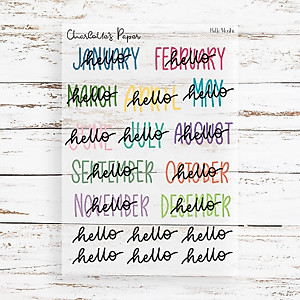 Charlotte's Paper
JANUARY hello FEBRUARY hello
MARCH hello APRIL hello MAY hello
JUNE hello JULY hello AUGUST hello
SEPTEMBER hello OCTOBER hello
NOVEMBER hello DECEMBER hello
hello hello hello
hello hello hello